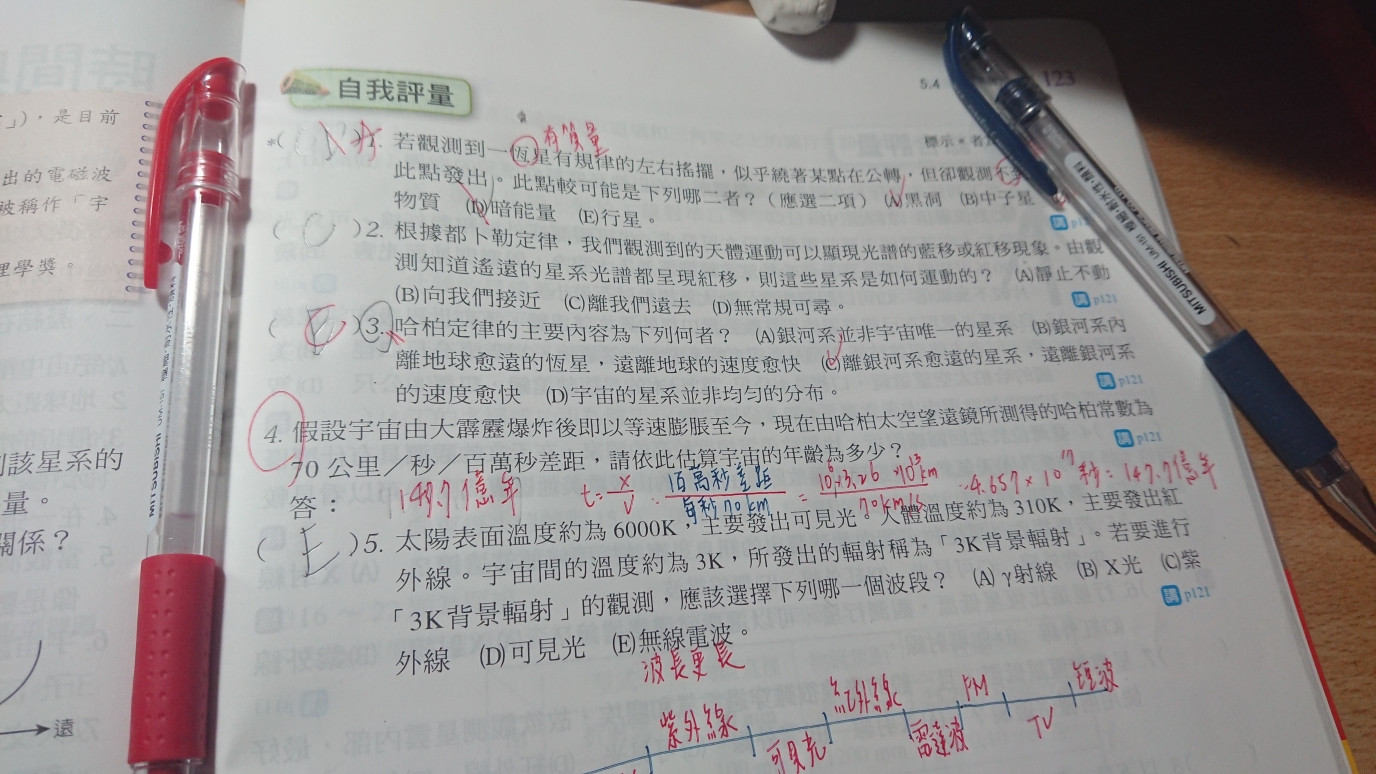 自我評量
5.4
123
若觀測到一恆星有規律的左右搖擺，似乎繞著某點在公轉，但卻觀測不到
有質量
標示＊者
此點發出。此點較可能是下列哪二者？（應選二項） (A)黑洞 (B)中子星
物質 (D)暗能量 (E)行星。
( )2. 根據都卜勒定律，我們觀測到的天體運動可以顯現光譜的藍移或紅移現象。由觀
測知道遙遠的星系光譜都呈現紅移，則這些星系是如何運動的？ (A)靜止不動
(B)向我們接近 (C)離我們遠去 (D)無常規可尋。
講 p121
( C )3. 哈柏定律的主要內容為下列何者？ (A)銀河系並非宇宙唯一的星系 (B)銀河系內
離地球愈遠的恆星，遠離地球的速度愈快 (C)離銀河系愈遠的星系，遠離銀河系
的速度愈快 (D)宇宙的星系並非均勻的分布。
講 p121
4. 假設宇宙由大霹靂爆炸後即以等速膨脹至今，現在由哈柏太空望遠鏡所測得的哈柏常數為
70 公里／秒／百萬秒差距，請依此估算宇宙的年齡為多少？
講 p121
答： 147.7億年 t= x/v = 百萬秒差距/每秒70km = 10⁶×3.26×10¹³km/70km/s = 4.657×10¹⁷秒=147.7億年
( E )5. 太陽表面溫度約為 6000K，主要發出可見光。人體溫度約為 310K，主要發出紅
外線。宇宙間的溫度約為 3K，所發出的輻射稱為「3K背景輻射」。若要進行
「3K背景輻射」的觀測，應該選擇下列哪一個波段？ (A) γ射線 (B) X光 (C)紫
外線 (D)可見光 (E)無線電波。
講 p121
波長更長
紫外線
可見光
紅外線
雷達波
FM
TV
短波
」），是目前
出的電磁波
被稱作「宇
理學獎。
該星系的
量。
關係？
遠
MITSUBISHI